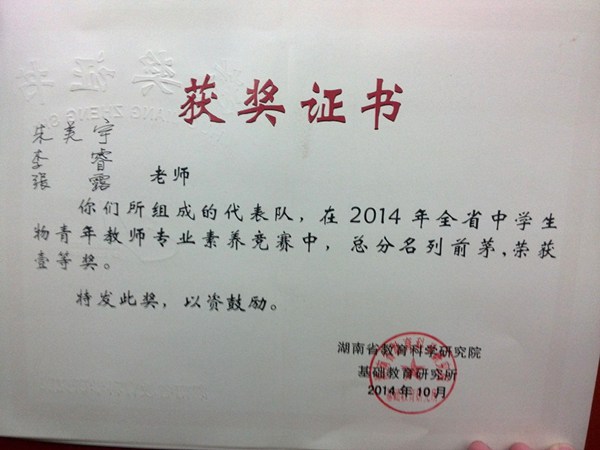 获奖证书
朱美宇
李睿
张露 老师
你们所组成的代表队，在2014年全省中学生
物青年教师专业素养竞赛中，总分名列前茅，荣获
壹等奖。
特发此奖，以资鼓励。
湖南省教育科学研究院
基础教育研究所
2014年10月